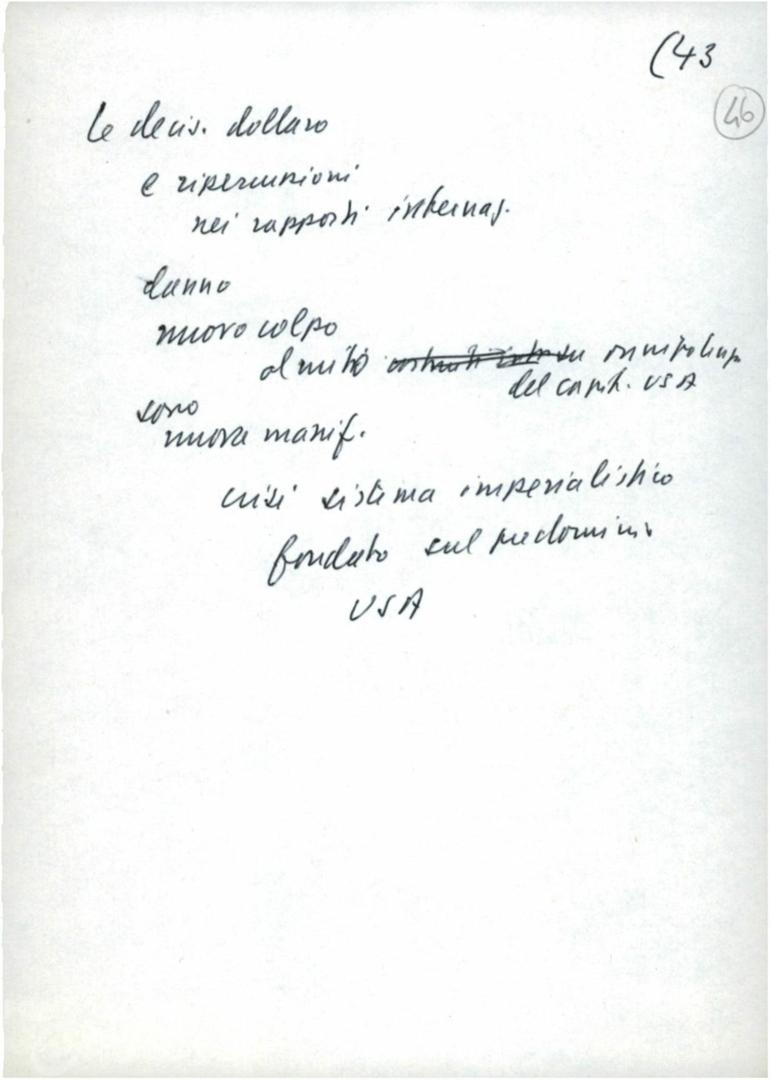 (43
46
le decis. dollaro
e ripercussioni
nei rapporti internaz.
danno
nuovo colpo
al mito onnipotenza
del capit. USA
sono
nuova manif.
crisi sistema imperialistico
fondato sul predominio
USA